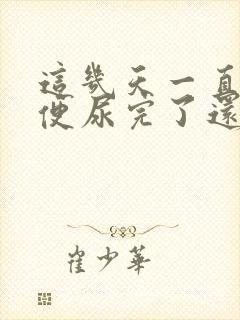 這幾天一直
便尿完了還
崔少華